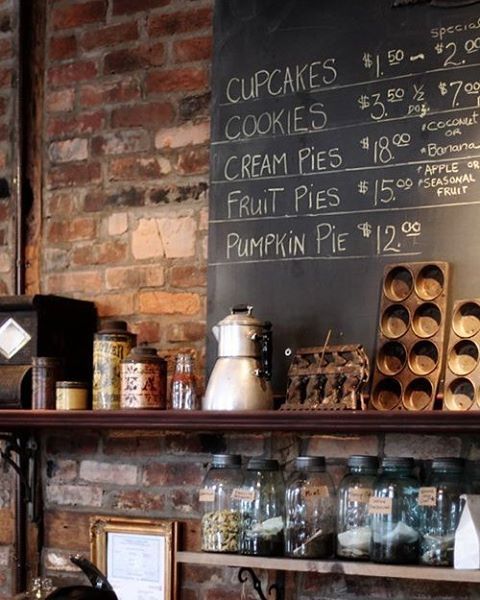 special
CUPCAKES $1.50 - $2.00
COOKIES $3.50 ½ DOZ $7.00
CREAM PIES $18.00 *COCONUT OR *Banana
FRUIT PIES $15.00 *APPLE OR *SEASONAL FRUIT
PUMPKIN PIE $12.00
TEA
Mint